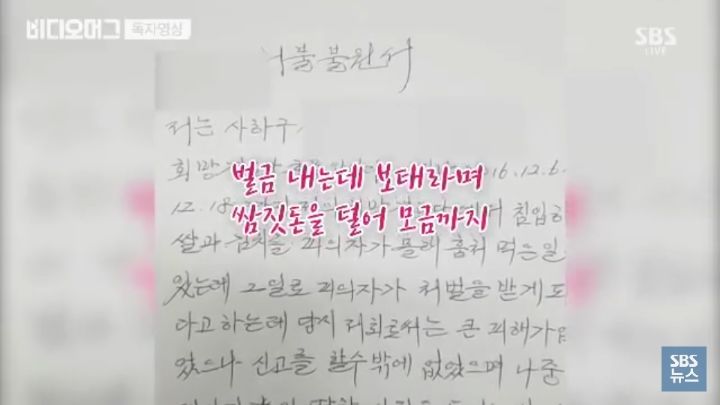 비디오머그 독자영상
SBS
LIVE
처벌불원서
저는 사하구
희망
벌금 내는데 보태라며
16.12.6.
12.18
쌈짓돈을 털어 모금까지
침입하
쌀과 김치를 피의자가 몰래 훔쳐 먹은 일
있는데 그일로 피의자가 처벌을 받게 되
다고 하는데 당시 저희로써는 큰 피해가 없
었으나 신고를 할수 밖에 없었으며 나중
SBS
뉴스